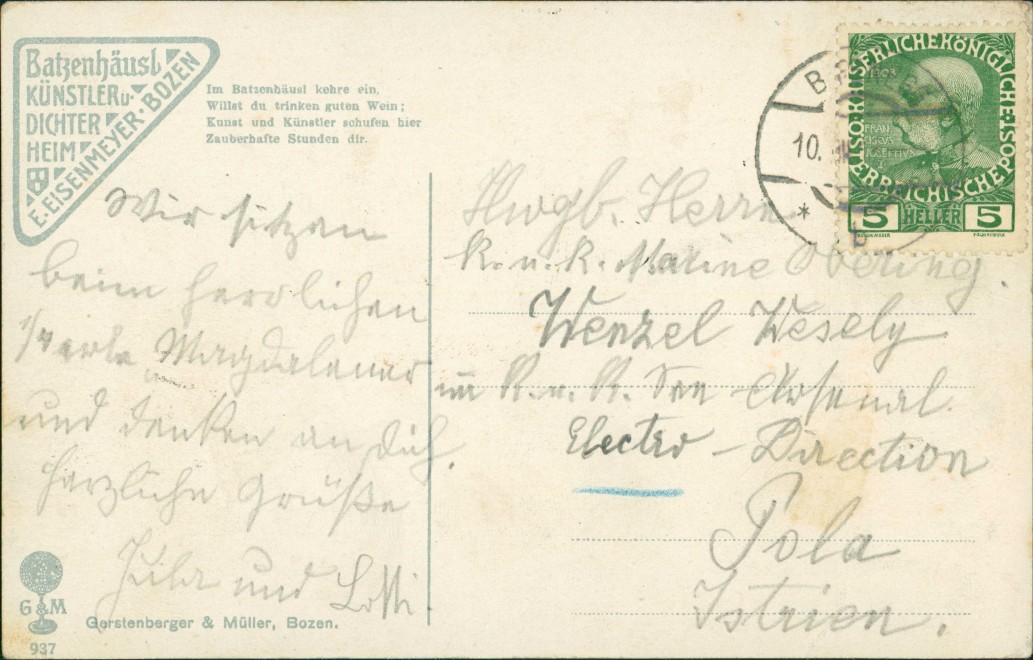 Batzenhäusl
KÜNSTLER u.
DICHTER
HEIM
E. EISENMEYER·BOZEN
Im Batzenhäusl kehre ein,
Willst du trinken guten Wein;
Kunst und Künstler schufen hier
Zauberhafte Stunden dir.
KAISERLICHEKÖNIGLICHE
ÖSTERREICHISCHE POST
1908
5 HELLER 5
10.
* b
Wir sitzen
beim herrlichen
Magdalener
und denken an dich.
herzliche Grüße
und
Hwgb. Herrn
k. u. k. Marine Obering.
Wenzel Wesely
im K. u. K. See Arsenal
Electro-Direction
Pola
Istrien.
G & M
Gerstenberger & Müller, Bozen.
937